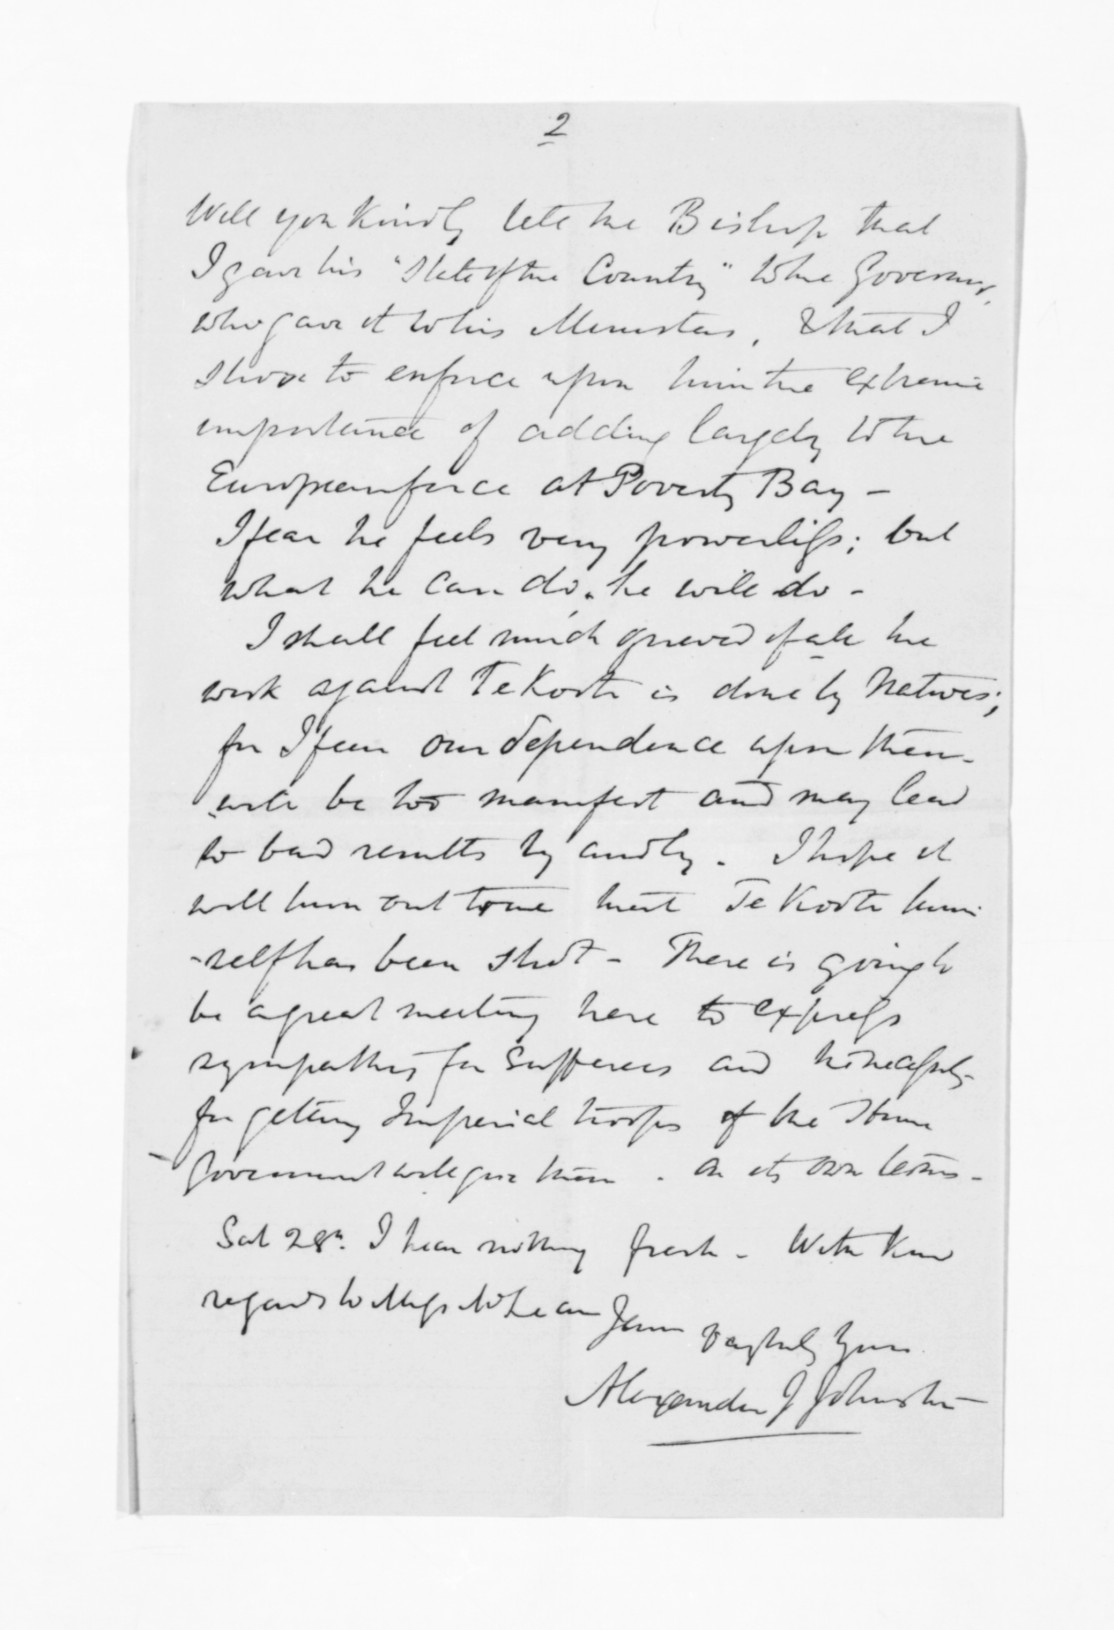 2
Will you kindly tell the Bishop that
I gave his "State of the Country" to the Governor,
who gave it to his Ministers, & that I
strove to enforce upon him the extreme
importance of adding largely to the
European force at Poverty Bay -
I fear he feels very powerless; but
what he can do, he will do -
I shall feel much grieved if all the
work against Te Kooti is done by Natives;
for I fear our dependence upon them
will be too manifest and may lead
to bad results by and by. I hope it
will turn out true that Te Kooti him
-self has been shot - There is going to
be a great meeting here to express
sympathy for Sufferers and
for getting Imperial troops if the Home
Government will give them - on its own terms -
Sat 28th. I hear nothing fresh - With kind
regards to Mrs McLean
faithfully yours
Alexander J Johnston